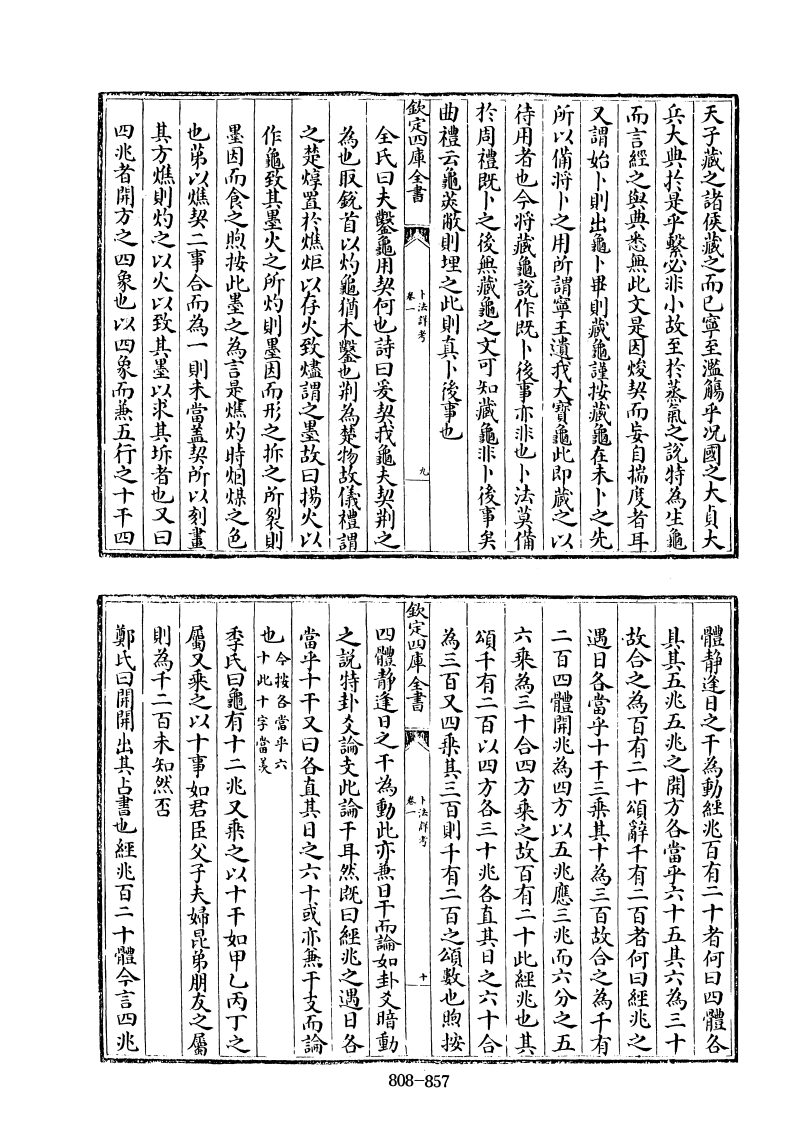 天子藏之諸侯藏之而已寧至濫觴乎况國之大貞大
兵大典於是乎繫必非小故至於蒸氣之說特為生龜
而言經之與典悉無此文是因焌契而妄自揣度者耳
又謂始卜則出龜卜畢則藏龜謹按藏龜在未卜之先
所以備將卜之用所謂寧王遺我大寶龜此即藏之以
待用者也今將藏龜說作既卜後事亦非也卜法莫備
於周禮既卜之後無藏龜之文可知藏龜非卜後事矣
曲禮云龜筴敝則埋之此則真卜後事也
欽定四庫全書
卜法詳考
卷一
九
全氏曰夫鑿龜用契何也詩曰爰契我龜夫契荆之
為也取銳首以灼龜猶木鑿也荆為楚物故儀禮謂
之楚焞置於燋炬以存火致燼謂之墨故曰揚火以
作龜致其墨火之所灼則墨因而形之拆之所裂則
墨因而食之煦按此墨之為言是燋灼時烟煤之色
也第以燋契二事合而為一則未當葢契所以刻畫
其方燋則灼之以火以致其墨以求其坼者也又曰
四兆者開方之四象也以四象而兼五行之十干四
體靜逢日之干為動經兆百有二十者何曰四體各
具其五兆五兆之開方各當乎六十五其六為三十
故合之為百有二十頌辭千有二百者何曰經兆之
遇日各當乎十干三乘其十為三百故合之為千有
二百四體開兆為四方以五兆應三兆而六分之五
六乘為三十合四方乘之故百有二十此經兆也其
頌千有二百以四方各三十兆各直其日之六十合
為三百又四乘其三百則千有二百之頌數也煦按
欽定四庫全書
卜法詳考
卷一
十
四體靜逢日之干為動此亦兼日干而論如卦爻暗動
之說特卦爻論支此論干耳然既曰經兆之遇日各
當乎十干又曰各直其日之六十或亦兼干支而論
也今按各當乎六
十此十字當羨
季氏曰龜有十二兆又乘之以十干如甲乙丙丁之
屬又乘之以十事如君臣父子夫婦昆弟朋友之屬
則為千二百未知然否
鄭氏曰開開出其占書也經兆百二十體今言四兆
808-857